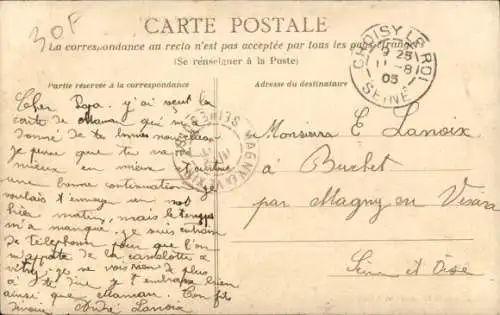 30F
CARTE POSTALE
La correspondance au recto n'est pas acceptée par tous les pays étrangers
(Se renseigner à la Poste)
Partie réservée à la correspondance
Adresse du destinataire
CHOISY LE ROI
9 25
11 -8
05
SEINE
Cher Papa. j'ai reçut la
carte de Maman qui m'a
donné de tes bonnes nouvelles
je pense que tu va de
mieux en mieux
une bonne continuation. je
voulais t'envoyer un mot
hier matin, mais le temps
m'a manqué, je suis entrain
de téléphoner pour que l'on
m'apporte de la camelotte a
vitry, je ne vois rien de plus
à te dire j'embrasse bien
ainsi que Maman. Ton fils
André Lanoix
MAGNY-EN-VEXIN
Monsieur E Lanoix
à Buchet
par Magny en Vexin
Seine et Oise